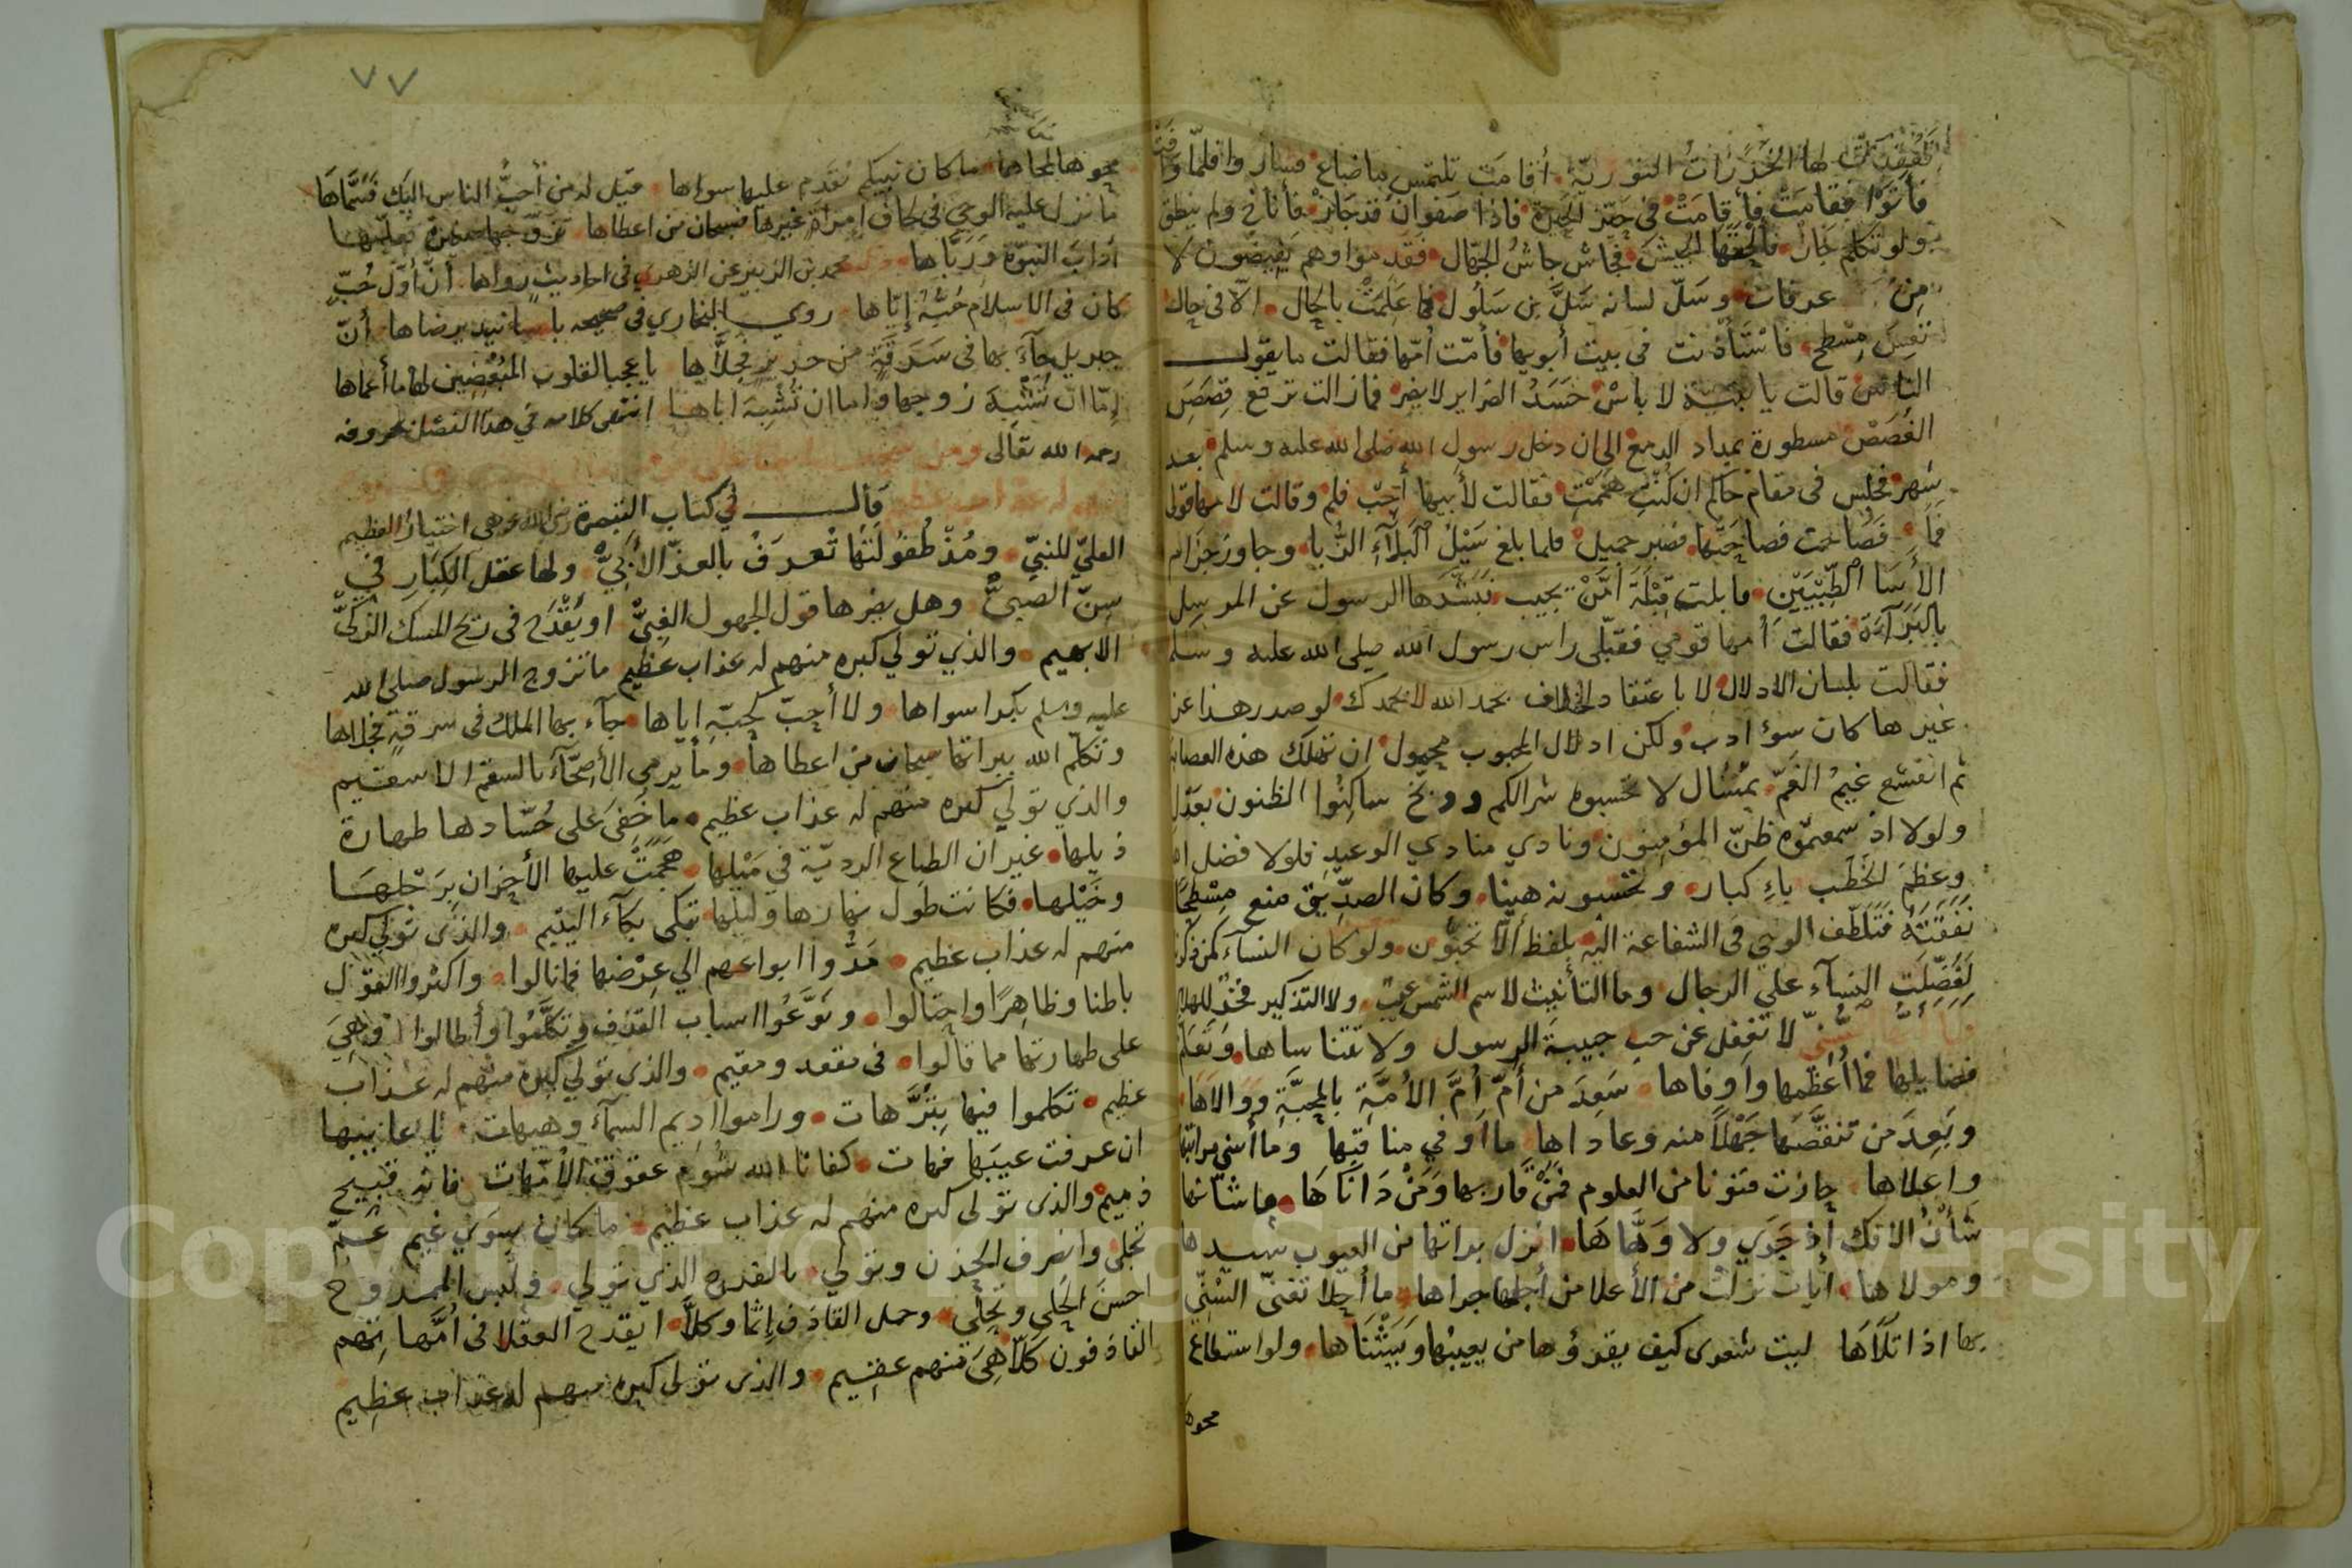 لها الخدرات النورية أقامت تلتمس ما ضاع فسار وا فلما وافت
فأتوا فقامت فأقامت في حيّز الحيرة فاذا صفوان قد جاز فأناخ ولم ينطق
ولو تكلم جاز فألحقها الجيش فجاش جاش الجهال فقدموا وهم يفيضون لا
من عرفات وسلّ لسانه سلّ بن سلول فما علمت بالحال الا في حال
تعس مسطح فاستأذنت في بيت أبويها فأمّت أمّها فقالت ما يقول
الناس قالت يا بنيّة لا باس حسد الضراير لا يضر فما زالت ترفع قصص
الغصص مسطورة بمداد الدمع الى ان دخل رسول الله صلى الله عليه وسلم بعد
شهر فجلس في مقام حاكم ان كنت هممت فقالت لأبيها أجب فلم وقالت لامها قولي
فصاحبها فصبر جميل فلما بلغ سيل البلاء الزبا وجاوز حزام
الأسا الطبيين ما بلت قبلة امّن يجيب فبشّرها الرسول عن المرسل
بالبرآءة فقالت أمها قومي فقبّلي راس رسول الله صلى الله عليه وسلم
فقالت بلسان الادلال لا باعتقاد الخلاف بحمد الله لا بحمدك لو صدر هذا عن
غيرها كان سوء ادب ولكن ادلال المحبوب محمول ان تهلك هذه العصابة
ثم انقشع غيم الغمّ لا تحسبوه شرا لكم ووبّخ ساكنوا الظنون بعدل
ولولا اذ سمعتموه ظنّ المؤمنون ونادي منادي الوعيد فلولا فضل الله
وعظم الخطب باء كبار وتحسبونه هينا وكان الصدّيق منع مسطحا
نفقته فتلطّف الوحي في الشفاعة اليه بلفظ ألا تحبون ولو كان النساء كمن ذكرنا
لفضّلت النسآء علي الرجال وما التأنيث لاسم الشمس عيب ولا التذكير فخر للهلال
لا تغفل عن حب حبيبة الرسول ولا تتناساها وتعلّم
فضايلها فما أعظمها وأوفاها سعد من أمّ أمّ الأمّة بالمحبّة ووالاها
وبعد من تنقّصها جهلاً منه وعاداها ما أوفي مناقبها وما أسني مراتبها
واعلاها حازت فنونا من العلوم فمن قاربها ومن داناها ما شانها
شأن الافك إذ جري ولا وهّاها انزل براتها من العيوب سيدها
ومولاها ايات نزلت من الأعلا من أجلها جراها ما أحلا تغنّي السنّي
بها اذا تلاها ليت شعري كيف يقرؤها من يعيبها ويشناها ولو استطاع
محوها
٧٧
محوها لمحاها ما كان نبيكم يقدم عليها سواها قيل له من أحبّ الناس اليك فسمّاها
ما نزل عليه الوحي في لحاف امراة غيرها فسبحان من اعطاها تزوّجها صغيرة فعلّمها
آداب النبوة وربّاها محمد بن الزبير عن الزهري في احاديث رواها أنّ أوّل حبّ
كان في الاسلام حبّه إيّاها روي البخاري في صحيحه باسانيد يرضاها أنّ
جبريل جاء بها في سرقة من حرير فجلاّها يا عجبا لقلوب المبغضين لها ما أعماها
إمّا ان تشبه زوجها واما ان تشبه اباها انتهى كلامه في هذا الفصل بحروفه
رحمه الله تعالى
قال في كتاب التبصرة رضي الله عنه هي اختيار العظيم
العليّ للنبيّ ومذ طفولتها تعرف بالعزّ الأبيّ ولها عقل الكبار في
سنّ الصبيّ وهل يضرها قول الجهول الغبيّ او يقدح في ريح المسك الذكيّ
الابهيم والذي تولي كبره منهم له عذاب عظيم ما تزوج الرسول صلي الله
عليه وسلم بكرا سواها ولا أحبّ كحبّه إياها جآء بها الملك في سرقة فجلاها
وتكلّم الله ببراتها سبحان من اعطاها وما يرمي الأصحّآء بالسقم الا سقيم
والذي تولي كبره منهم له عذاب عظيم ما خفي على حسّادها طهارة
ذيلها غير ان الطباع الرديّة في ميلها هجمت عليها الأحزان برجلها
وخيلها فكانت طول نهارها وليلها تبكي بكآء اليتيم والذى تولي كبره
منهم له عذاب عظيم مدّوا ابواعهم الي عرضها فما نالوا واكثروا القول
باطنا وظاهرا واحتالوا ونوّعوا اسباب القذف وتكلّموا وأطالوا وهي
على طهارتها مما قالوا في مقعد ومقيم والذي تولي كبره منهم له عذاب
عظيم تكلموا فيها بترّهات وراموا اديم السمآء وهيهات يا عايبها
ان عرفت عيبها فهات كفانا الله شوم عقوق الأمّهات فانه قبيح
ذميم والذى تولى كبره منهم له عذاب عظيم ما كان سوي غيم عمّ
تجلى وانصرف الحزن وتولي بالقدره الذي تولي ولبس الممدوح
احسن الحلي وتحلّي وحمل القاذف إثما وكلاّ ايقدح العقلا في امّها تهم
القاذفون كلاّ هي منهم عقيم والذى تولى كبره منهم له عذاب عظيم